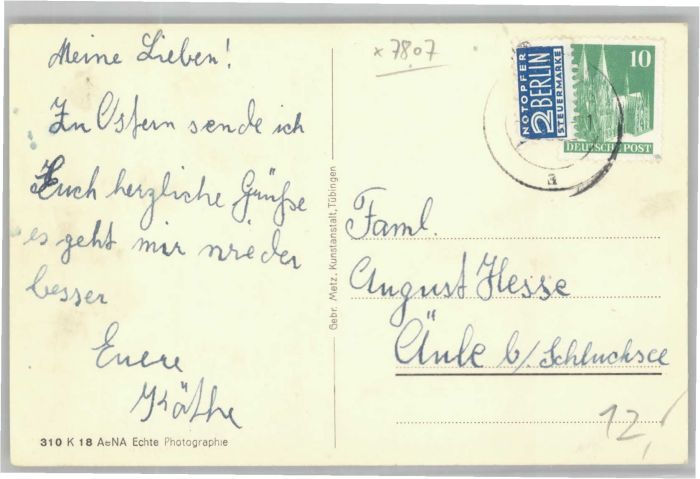 Meine Lieben!
Zu Ostern sende ich
Euch herzliche Grüße
es geht mir wieder
besser
Euere
Käthe
310 K 18 AeNA Echte Photographie
Gebr. Metz, Kunstanstalt, Tübingen
x 7807
NOTOPFER
2 BERLIN
STEUERMARKE
10
DEUTSCHE POST
a
Faml.
August Hesse
Äule b/Schluchsee
12,-